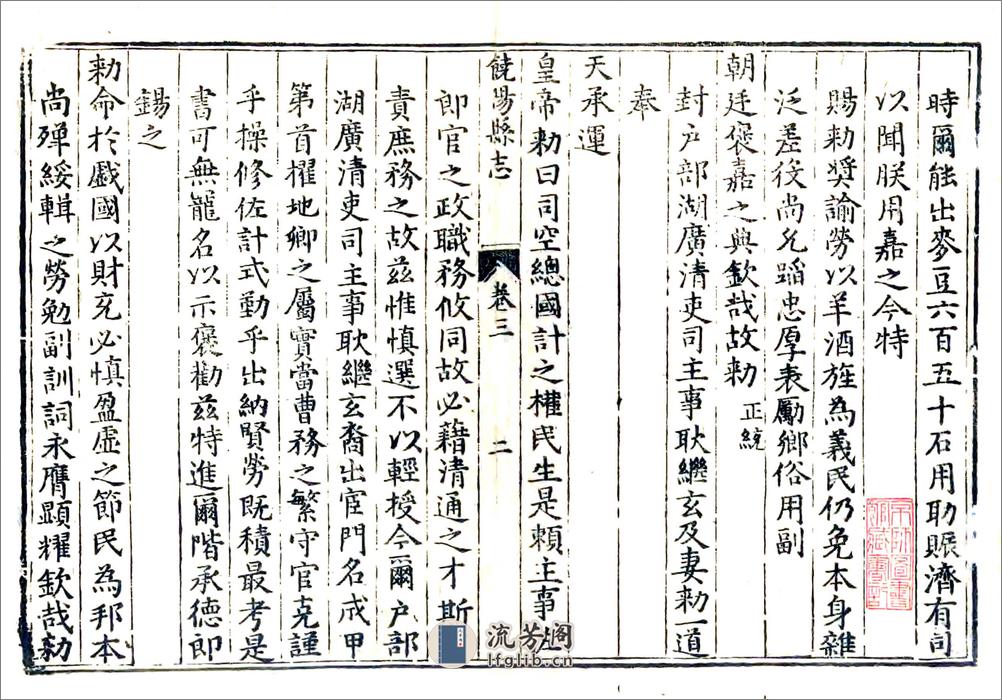 時爾能出麥豆六百五十石用助賑濟有司
以聞朕用嘉之今特
賜勅奬諭勞以羊酒旌為義民仍免本身雜
泛差役尚允蹈忠厚表勵鄉俗用副
朝廷褒嘉之典欽哉故勅 正統
封户部湖廣清吏司主事耿繼玄及妻勅一道
奉
天承運
皇帝勅曰司空總國計之權民生是賴主事
饒陽縣志 卷三 二
郎官之政職務攸同故必藉清通之才斯
責庶務之故兹惟慎選不以輕授今爾户部
湖廣清吏司主事耿繼玄裔出宦門名成甲
第首擢地卿之屬實當曹務之繁守官克謹
乎操修佐計式勤乎出納賢勞既積最考是
書可無寵名以示褒勸兹特進爾階承德郎
錫之
勅命於戲國以財充必慎盈虛之節民為邦本
尚殫綏輯之勞勉副訓詞永膺顯耀欽哉勅
流芳阁
lfglib.cn